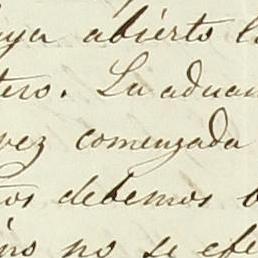 haya abierto la
tero. La aduan
vez comenzada
tos debemos
no no se efe